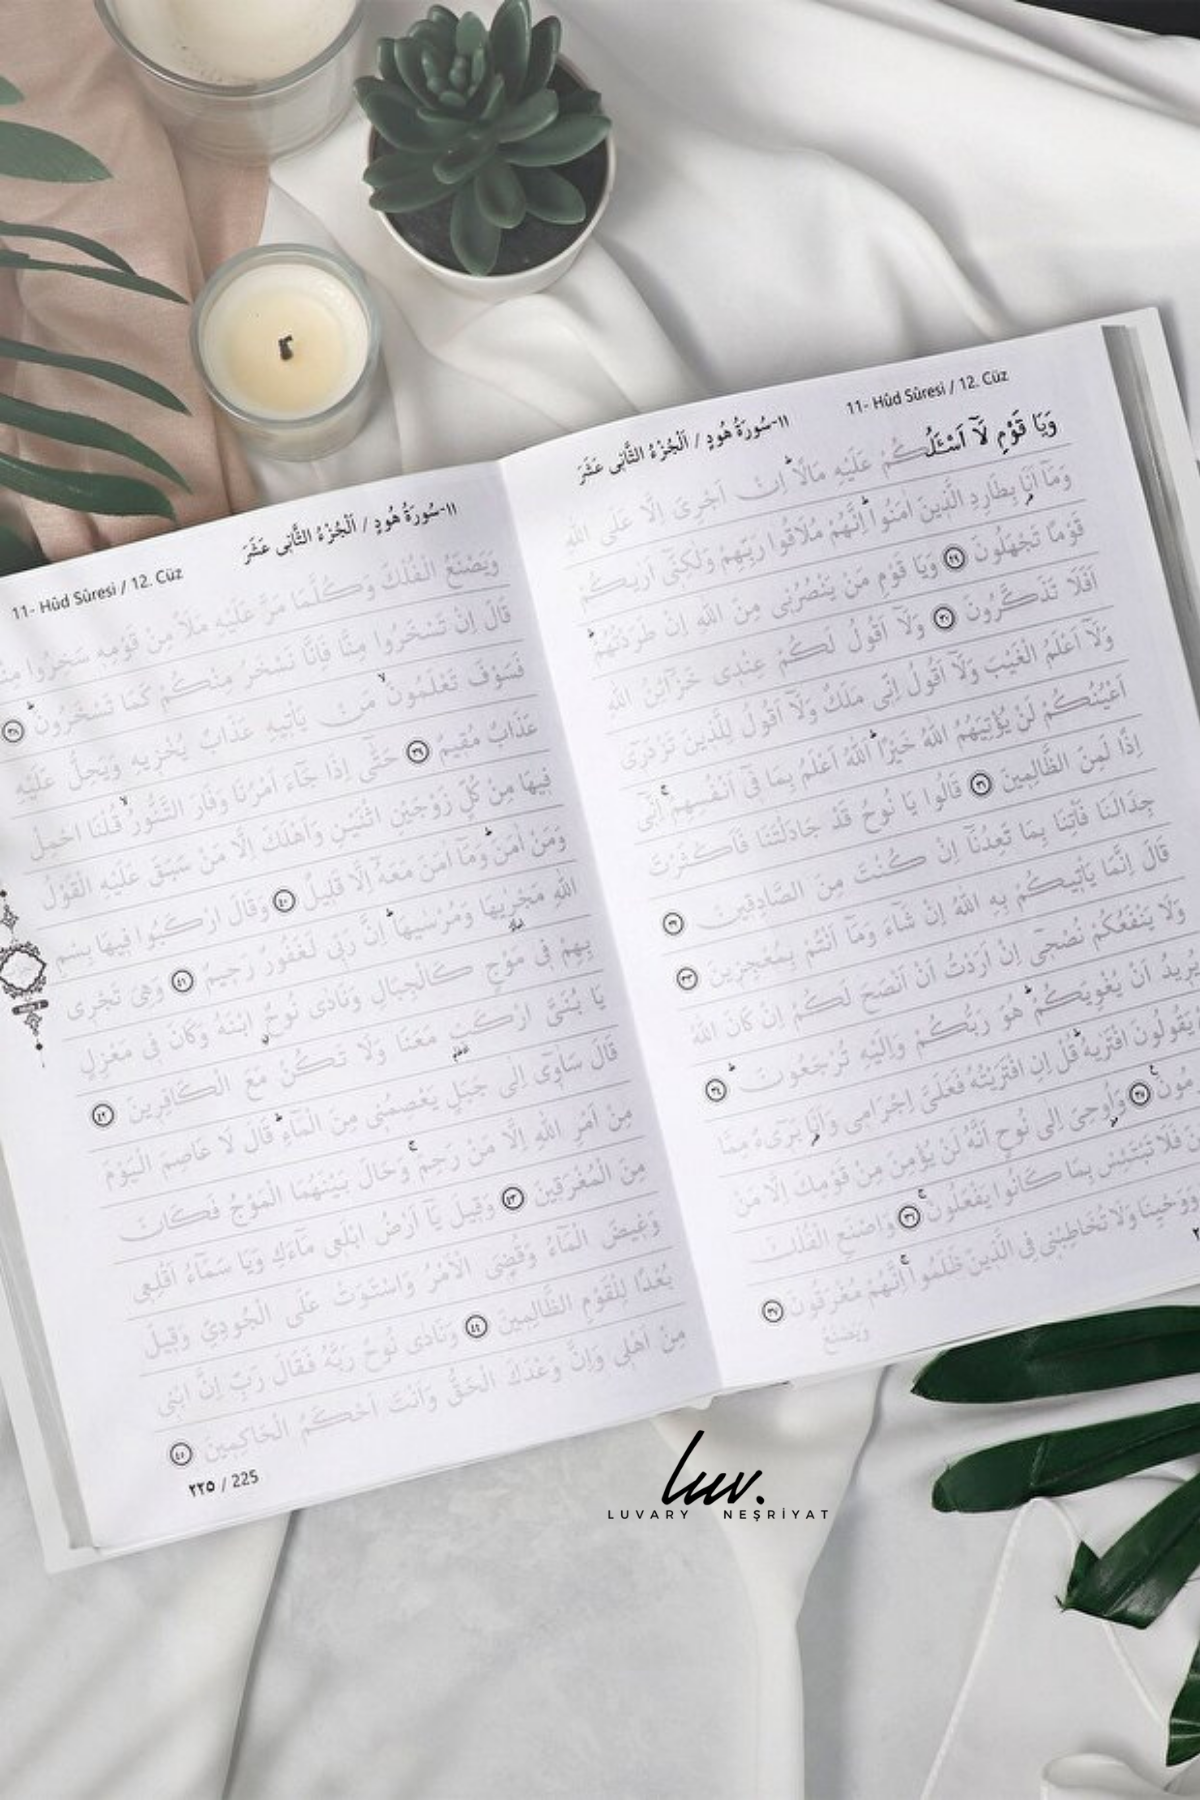 11- Hûd Sûresi / 12. Cüz
١١-سُورَةُ هُودٍ / اَلْجُزْءُ الثَّانِى عَشَرَ
وَيَا قَوْمِ لَآ اَسْـَٔلُكُمْ عَلَيْهِ مَالًاۜ اِنْ اَجْرِىَ اِلَّا عَلَى اللّٰهِ
وَمَآ اَنَا۬ بِطَارِدِ الَّذِينَ اٰمَنُواۜ اِنَّهُمْ مُلَاقُوا رَبِّهِمْ وَلٰكِنِّٓى اَرٰيكُمْ
قَوْمًا تَجْهَلُونَ ﴿٢٩﴾ وَيَا قَوْمِ مَنْ يَنْصُرُنِى مِنَ اللّٰهِ اِنْ طَرَدْتُهُمْۜ
اَفَلَا تَذَكَّرُونَ ﴿٣٠﴾ وَلَآ اَقُولُ لَكُمْ عِنْدِى خَزَآئِنُ اللّٰهِ
وَلَآ اَعْلَمُ الْغَيْبَ وَلَآ اَقُولُ اِنِّى مَلَكٌ وَلَآ اَقُولُ لِلَّذِينَ تَزْدَرِٓى
اَعْيُنُكُمْ لَنْ يُؤْتِيَهُمُ اللّٰهُ خَيْرًاۜ اَللّٰهُ اَعْلَمُ بِمَا فِٓى اَنْفُسِهِمْۚ اِنِّٓى
اِذًا لَمِنَ الظَّالِمِينَ ﴿٣١﴾ قَالُوا يَا نُوحُ قَدْ جَادَلْتَنَا فَاَكْثَرْتَ
جِدَالَنَا فَأْتِنَا بِمَا تَعِدُنَآ اِنْ كُنْتَ مِنَ الصَّادِقِينَ ﴿٣٢﴾
قَالَ اِنَّمَا يَأْتِيكُمْ بِهِ اللّٰهُ اِنْ شَآءَ وَمَآ اَنْتُمْ بِمُعْجِزِينَ ﴿٣٣﴾
وَلَا يَنْفَعُكُمْ نُصْحِٓى اِنْ اَرَدْتُ اَنْ اَنْصَحَ لَكُمْ اِنْ كَانَ اللّٰهُ
يُرِيدُ اَنْ يُغْوِيَكُمْۜ هُوَ رَبُّكُمْ وَاِلَيْهِ تُرْجَعُونَۜ ﴿٣٤﴾
يَقُولُونَ افْتَرٰيهُۜ قُلْ اِنِ افْتَرَيْتُهُ فَعَلَىَّ اِجْرَامِى وَاَنَا۬ بَرِٓىءٌ مِمَّا
وَاُوحِىَ اِلٰى نُوحٍ اَنَّهُ لَنْ يُؤْمِنَ مِنْ قَوْمِكَ اِلَّا مَنْ
فَلَا تَبْتَئِسْ بِمَا كَانُوا يَفْعَلُونَۚ ﴿٣٦﴾ وَاصْنَعِ الْفُلْكَ
وَوَحْيِنَا وَلَا تُخَاطِبْنِى فِى الَّذِينَ ظَلَمُواۚ اِنَّهُمْ مُغْرَقُونَ ﴿٣٧﴾
وَيَصْنَعُ
١١-سُورَةُ هُودٍ / اَلْجُزْءُ الثَّانِى عَشَرَ
11- Hûd Sûresi / 12. Cüz
وَيَصْنَعُ الْفُلْكَ وَكُلَّمَا مَرَّ عَلَيْهِ مَلَاٌ مِنْ قَوْمِهِ سَخِرُوا
قَالَ اِنْ تَسْخَرُوا مِنَّا فَاِنَّا نَسْخَرُ مِنْكُمْ كَمَا تَسْخَرُونَۜ ﴿٣٨﴾
فَسَوْفَ تَعْلَمُونَۙ مَنْ يَأْتِيهِ عَذَابٌ يُخْزِيهِ وَيَحِلُّ عَلَيْهِ
عَذَابٌ مُقِيمٌ ﴿٣٩﴾ حَتّٰٓى اِذَا جَآءَ اَمْرُنَا وَفَارَ التَّنُّورُۙ قُلْنَا احْمِلْ
فِيهَا مِنْ كُلٍّ زَوْجَيْنِ اثْنَيْنِ وَاَهْلَكَ اِلَّا مَنْ سَبَقَ عَلَيْهِ الْقَوْلُ
وَمَنْ اٰمَنَۜ وَمَآ اٰمَنَ مَعَهُٓ اِلَّا قَلِيلٌ ﴿٤٠﴾ وَقَالَ ارْكَبُوا فِيهَا بِسْمِ
اللّٰهِ مَجْرٰۭيهَا وَمُرْسٰيهَاۜ اِنَّ رَبِّى لَغَفُورٌ رَحِيمٌ ﴿٤١﴾ وَهِىَ تَجْرِى
بِهِمْ فِى مَوْجٍ كَالْجِبَالِ وَنَادٰى نُوحٌۨ ابْنَهُ وَكَانَ فِى مَعْزِلٍ
يَا بُنَىَّ ارْكَبْ مَعَنَا وَلَا تَكُنْ مَعَ الْكَافِرِينَ ﴿٤٢﴾
قَالَ سَاٰوِٓى اِلٰى جَبَلٍ يَعْصِمُنِى مِنَ الْمَآءِۜ قَالَ لَا عَاصِمَ الْيَوْمَ
مِنْ اَمْرِ اللّٰهِ اِلَّا مَنْ رَحِمَۚ وَحَالَ بَيْنَهُمَا الْمَوْجُ فَكَانَ
مِنَ الْمُغْرَقِينَ ﴿٤٣﴾ وَقِيلَ يَٓا اَرْضُ ابْلَعِى مَآءَكِ وَيَا سَمَآءُ اَقْلِعِى
وَغِيضَ الْمَآءُ وَقُضِىَ الْاَمْرُ وَاسْتَوَتْ عَلَى الْجُودِىِّ وَقِيلَ
بُعْدًا لِلْقَوْمِ الظَّالِمِينَ ﴿٤٤﴾ وَنَادٰى نُوحٌ رَبَّهُ فَقَالَ رَبِّ اِنَّ ابْنِى
مِنْ اَهْلِى وَاِنَّ وَعْدَكَ الْحَقُّ وَاَنْتَ اَحْكَمُ الْحَاكِمِينَ ﴿٤٥﴾
٢٢٥ / 225
luv.
LUVARY NEŞRİYAT